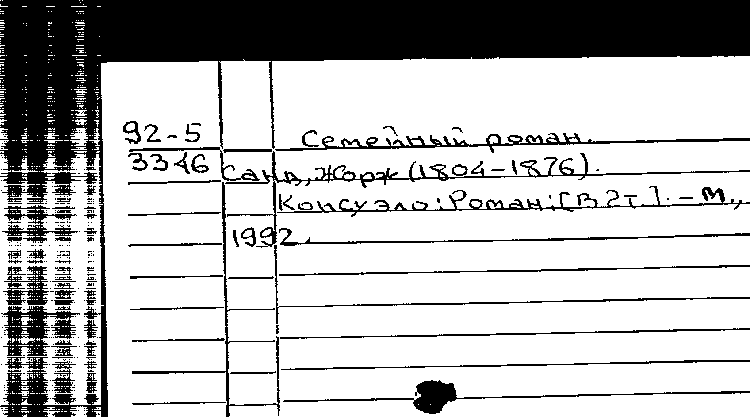 92-5 Семейный роман.
3346 Санд, Жорж (1804-1876).
Консуэло: Роман: [В 2 т.]. - М.,
1992.